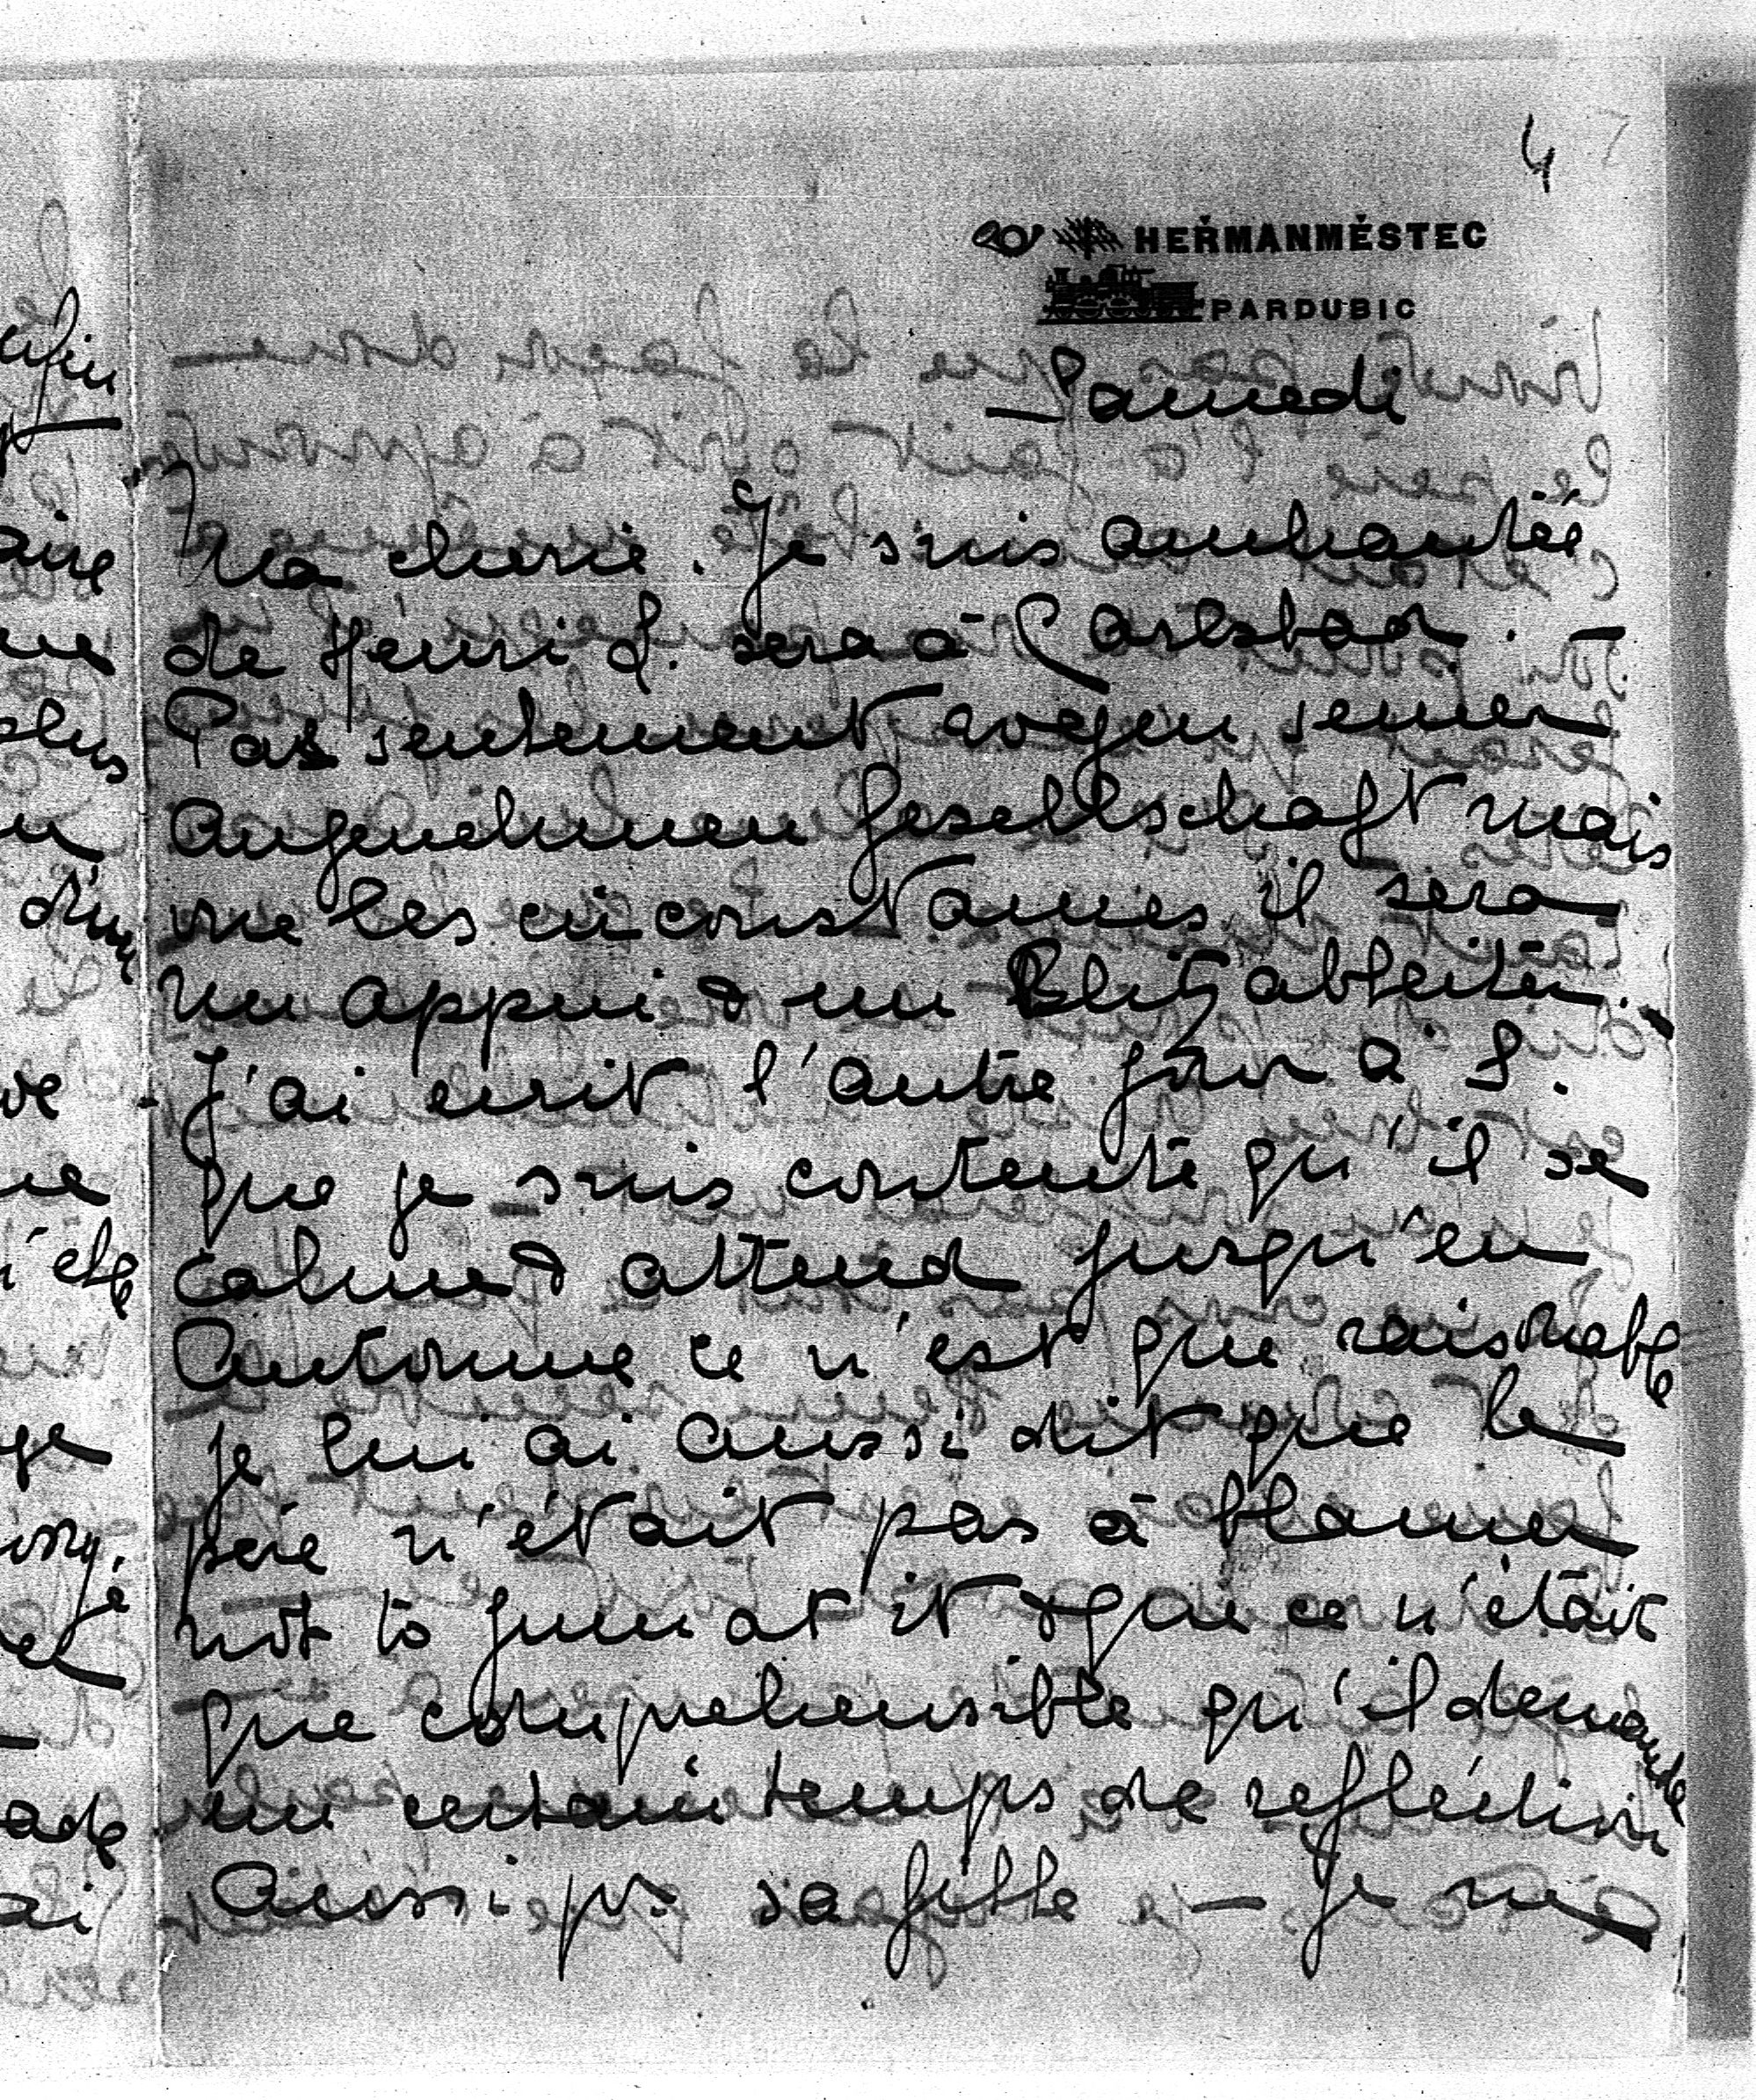 4
HEŘMANMĚSTEC
PARDUBIC
Samedi
Ma cherie. Je suis enchantée
de Henri L. sera à Carlsbad. —
Pas seulement wegen seiner
angenehmen Gesellschaft mais
vue les circonstances il sera
un appui & un Blitzableiter.
J'ai ecrit l'autre jour à S.
que je suis contente qu'il se
calme & attend jusqu'en
Automne ce n'est que raisonable
je lui ai aussi dit que le
père n'était pas à blamer
not to jump at it & que ce n'était
que comprehensible qu'il demande
un certain temps de refléction
aussi pr sa fille — Je me